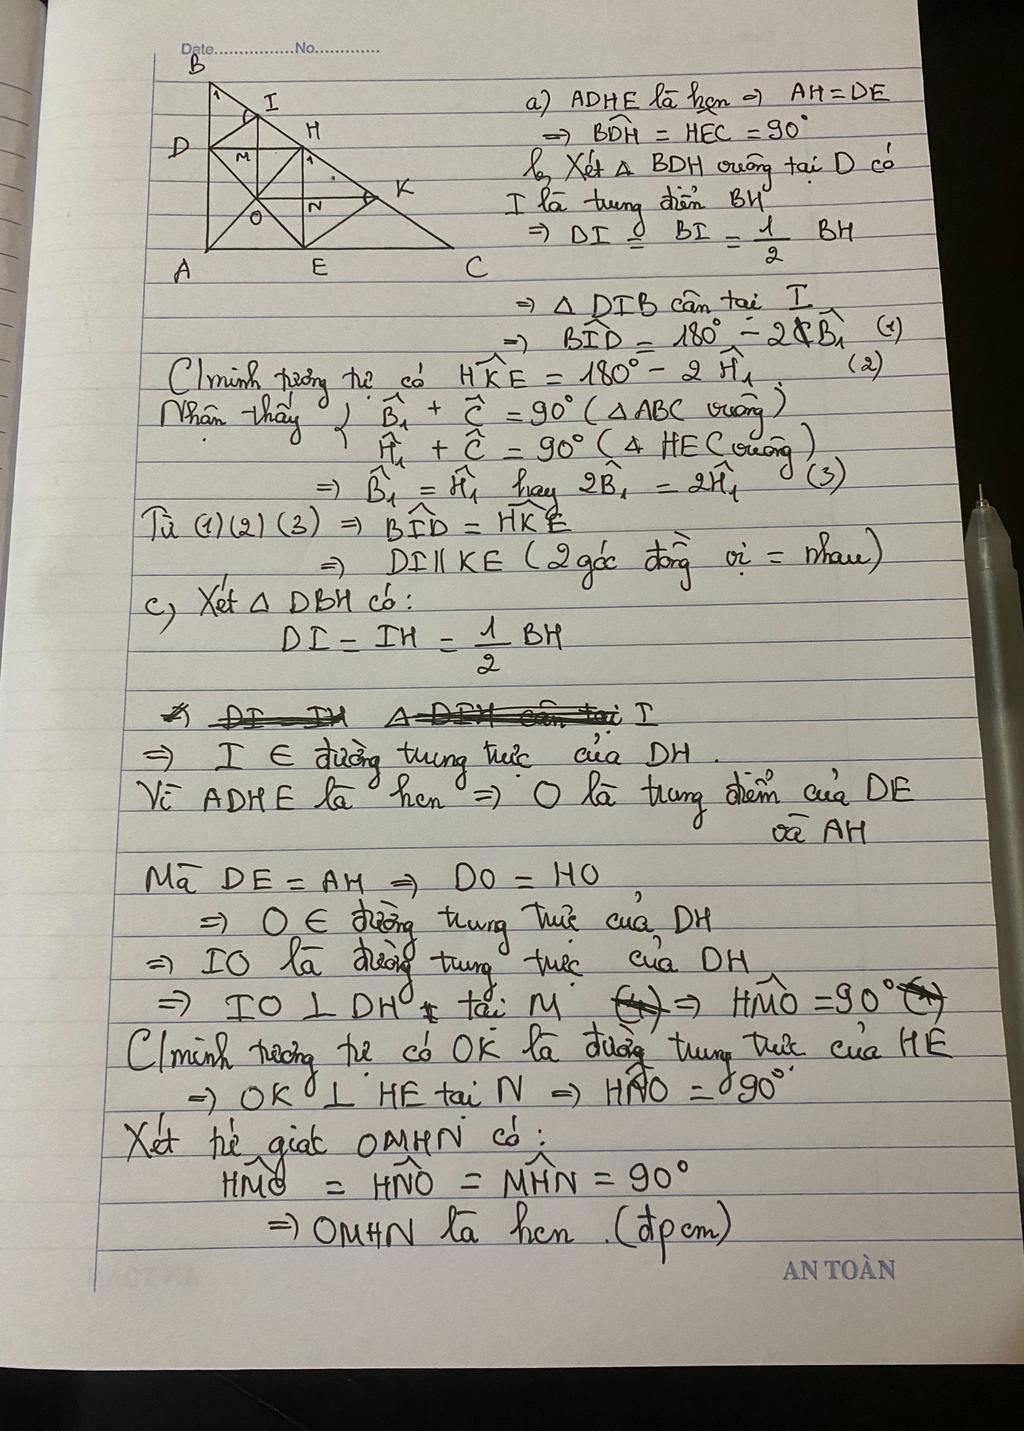 Date................No.............
B
1
I
H
1
D
M
K
O
N
A
E
C
a) ADHE là hcn => AH = DE
=> BD̂H = HÊC = 90°
b, Xét Δ BDH vuông tại D có
I là trung điểm BH
=> DI = BI = 1/2 BH
=> Δ DIB cân tại I
=> BÎD = 180° - 2B̂₁ (1)
C/minh tương tự có HK̂E = 180° - 2 Ĥ₁ (2)
Nhận thấy { B̂₁ + Ĉ = 90° (Δ ABC vuông)
Ĥ₁ + Ĉ = 90° (Δ HEC vuông)
=> B̂₁ = Ĥ₁ hay 2B̂₁ = 2Ĥ₁ (3)
Từ (1) (2) (3) => BÎD = HK̂E
=> DI // KE (2 góc đồng vị = nhau)
c, Xét Δ DBH có:
DI = IH = 1/2 BH
=> DI = IH Δ DIH cân tại I
=> I ∈ đường trung trực của DH.
Vì ADHE là hcn => O là trung điểm của DE
và AH
Mà DE = AH => DO = HO
=> O ∈ đường trung trực của DH
=> IO là đường trung trực của DH
=> IO ⊥ DH tại M => HM̂O = 90°
C/minh tương tự có OK là đường trung trực của HE
=> OK ⊥ HE tại N => HN̂O = 90°
Xét tứ giác OMHN có:
HM̂O = HN̂O = MĤN = 90°
=> OMHN là hcn. (đpcm)
AN TOÀN